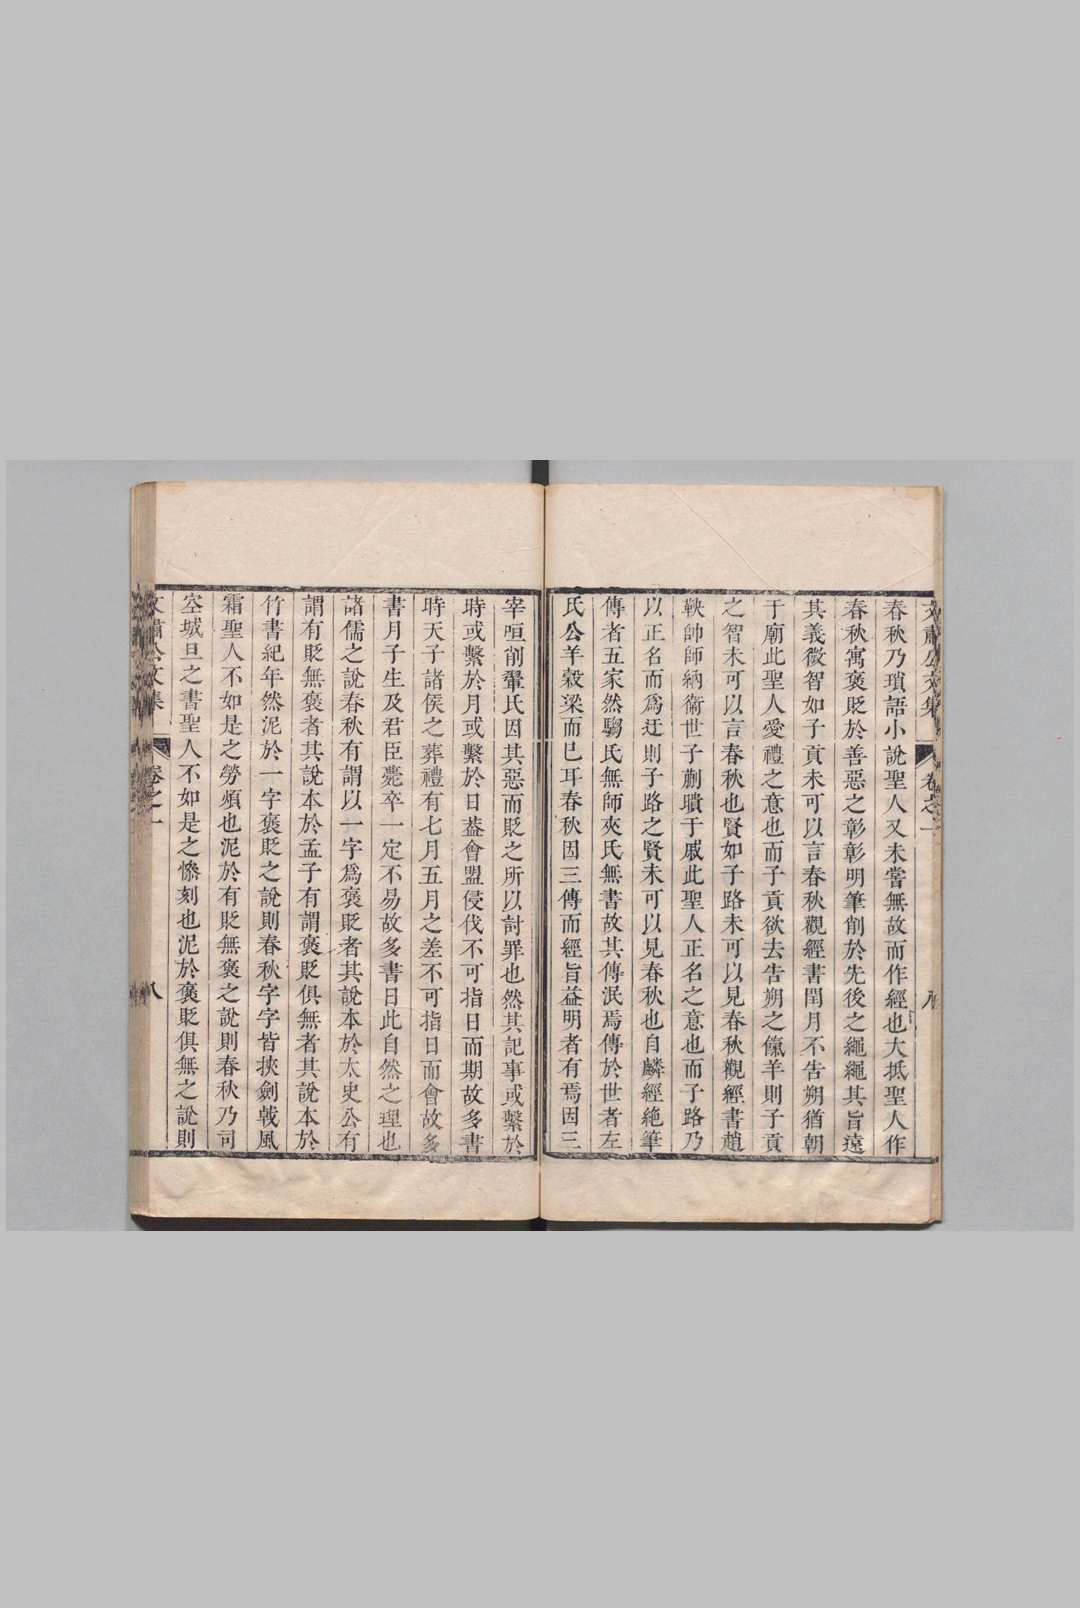 春秋乃瑣語小說聖人又未嘗無故而作經也大抵聖人作
春秋寓褒貶於善惡之彰彰明筆削於先後之繩繩其旨遠
其義微智如子貢未可以言春秋觀經書閏月不告朔猶朝
于廟此聖人愛禮之意也而子貢欲去告朔之餼羊則子貢
之智未可以言春秋也賢如子路未可以見春秋觀經書趙
鞅帥師納衛世子蒯聵于戚此聖人正名之意也而子路乃
以正名而爲迂則子路之賢未可以見春秋也自麟經絶筆
傳者五家然騶氏無師夾氏無書故其傳泯焉傳於世者左
氏公羊穀梁而已耳春秋因三傳而經旨益明者有焉因三
宰咺削翬氏因其惡而貶之所以討罪也然其記事或繫於
時或繫於月或繫於日葢會盟侵伐不可指日而期故多書
時天子諸侯之葬禮有七月五月之差不可指日而會故多
書月子生及君臣薨卒一定不易故多書日此自然之理也
諸儒之說春秋有謂以一字爲褒貶者其說本於太史公有
謂有貶無褒者其說本於孟子有謂褒貶俱無者其說本於
竹書紀年然泥於一字褒貶之說則春秋字字皆挾劍戟風
霜聖人不如是之勞頻也泥於有貶無褒之說則春秋乃司
空城旦之書聖人不如是之慘刻也泥於褒貶俱無之說則
文肅公文集 卷之一 八